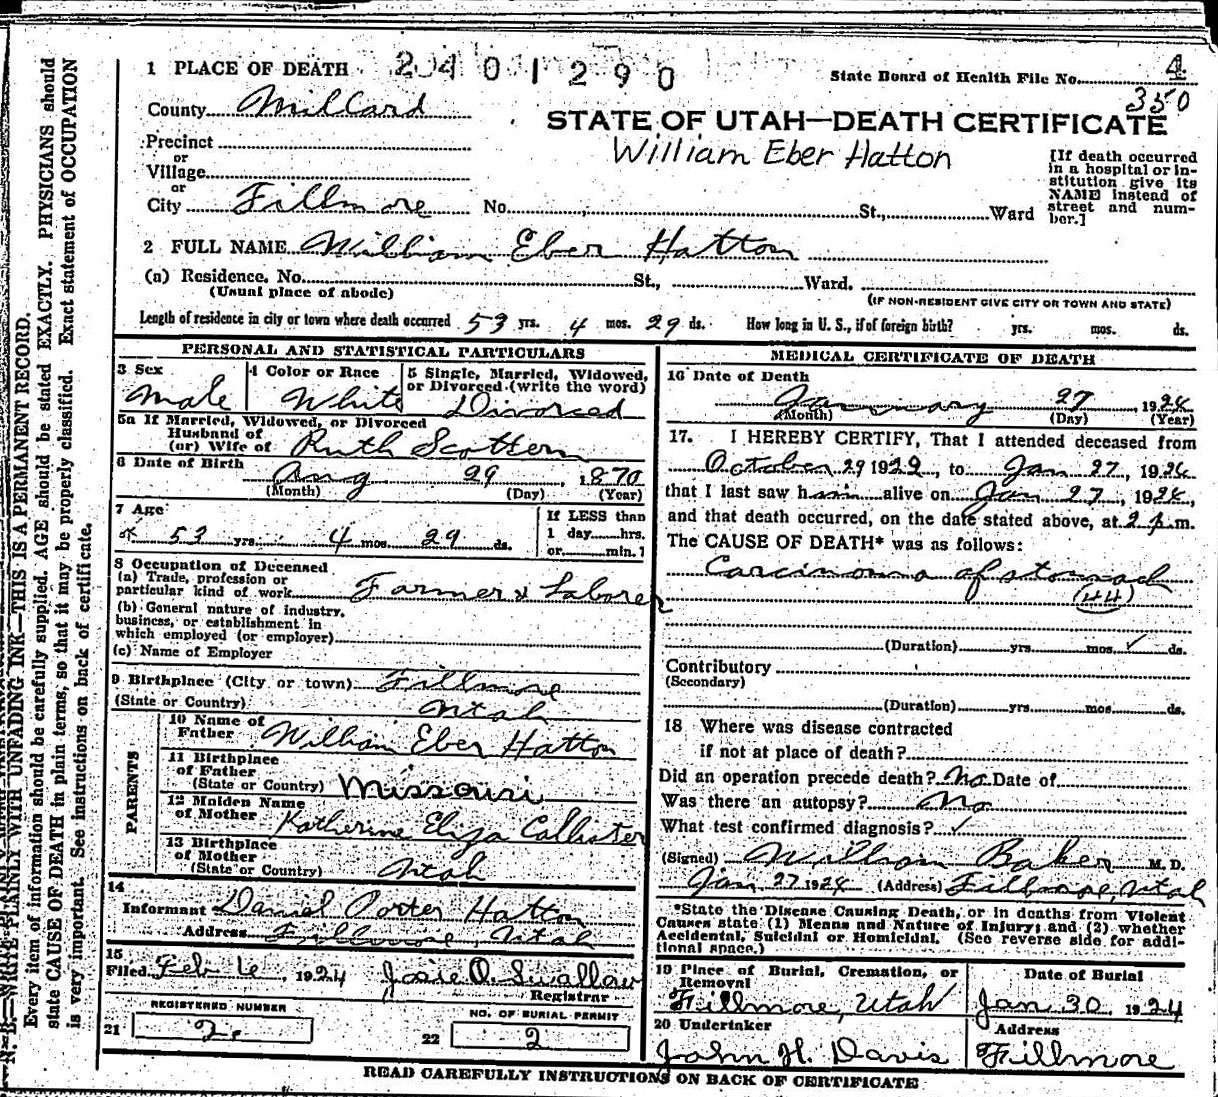 1 PLACE OF DEATH 2401290 State Board of Health File No. 4
County Millard 350
STATE OF UTAH—DEATH CERTIFICATE
William Eber Hatton
Precinct
or
Village
or
City Fillmore No. St., Ward
[If death occurred
in a hospital or in-
stitution give its
NAME instead of
street and num-
ber.]
2 FULL NAME William Eber Hatton
(a) Residence. No. St., Ward.
(Usual place of abode) (IF NON-RESIDENT GIVE CITY OR TOWN AND STATE)
Length of residence in city or town where death occurred 53 yrs. 4 mos. 29 ds. How long in U. S., if of foreign birth? yrs. mos. ds.
PERSONAL AND STATISTICAL PARTICULARS
3 Sex
Male
4 Color or Race
White
5 Single, Married, Widowed,
or Divorced (write the word)
Divorced
5a If Married, Widowed, or Divorced
Husband of
(or) Wife of Ruth Scottern
6 Date of Birth
Aug 29 1870
(Month) (Day) (Year)
7 Age
53 yrs. 4 mos. 29 ds.
If LESS than
1 day hrs.
or min. ?
8 Occupation of Deceased
(a) Trade, profession or
particular kind of work Farmer & Laborer
(b) General nature of industry,
business, or establishment in
which employed (or employer)
(c) Name of Employer
9 Birthplace (City or town) Fillmore
(State or Country) Utah
PARENTS
10 Name of
Father William Eber Hatton
11 Birthplace
of Father
(State or Country) Missouri
12 Maiden Name
of Mother Katherine Eliza Callister
13 Birthplace
of Mother
(State or Country) Utah
14
Informant Daniel Porter Hatton
Address Fillmore, Utah
15
Filed Feb 6, 1924 Josie O. Swallow
Registrar
REGISTERED NUMBER
21 2.
NO. OF BURIAL PERMIT
22 2
MEDICAL CERTIFICATE OF DEATH
16 Date of Death
January 27, 1924
(Month) (Day) (Year)
17. I HEREBY CERTIFY, That I attended deceased from
October 29 1923, to Jan 27, 1924
that I last saw him alive on Jan 27, 1924,
and that death occurred, on the date stated above, at 2 p.m.
The CAUSE OF DEATH* was as follows:
Carcinoma of stomach
(44)
(Duration) yrs. mos. ds.
Contributory
(Secondary)
(Duration) yrs. mos. ds.
18 Where was disease contracted
if not at place of death?
Did an operation precede death? No Date of
Was there an autopsy? No
What test confirmed diagnosis? ✓
(Signed) William Baker M. D.
Jan 27 1924 (Address) Fillmore, Utah
*State the Disease Causing Death, or in deaths from Violent
Causes state (1) Means and Nature of Injury; and (2) whether
Accidental, Suicidal or Homicidal. (See reverse side for addi-
tional space.)
19 Place of Burial, Cremation, or
Removal
Fillmore, Utah
Date of Burial
Jan 30 1924
20 Undertaker
John H. Davis
Address
Fillmore
READ CAREFULLY INSTRUCTIONS ON BACK OF CERTIFICATE
N. B.—WRITE PLAINLY WITH UNFADING INK—THIS IS A PERMANENT RECORD.
Every item of information should be carefully supplied. AGE should be stated EXACTLY. PHYSICIANS should
state CAUSE OF DEATH in plain terms, so that it may be properly classified. Exact statement of OCCUPATION
is very important. See instructions on back of certificate.